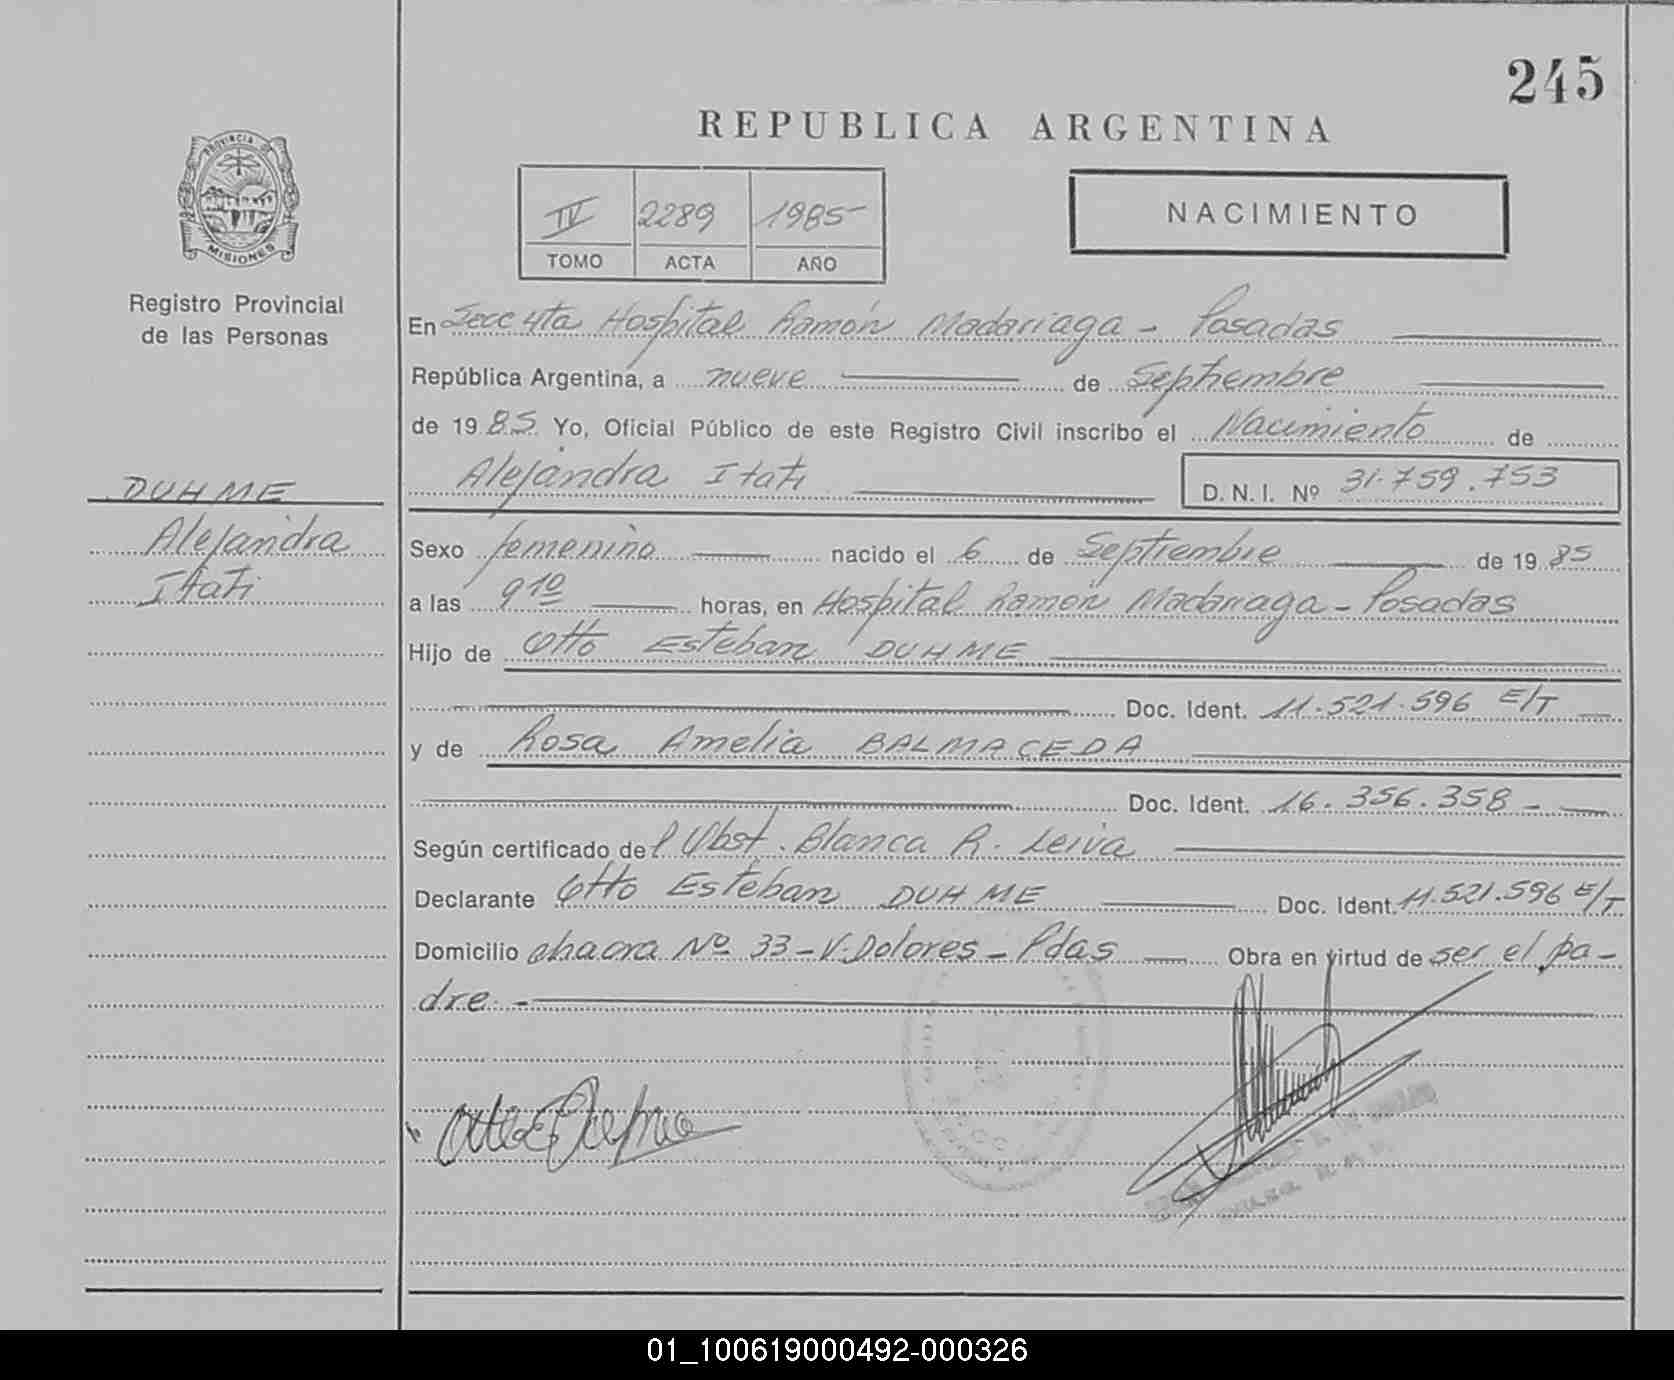 245
REPUBLICA ARGENTINA
PROVINCIA DE
MISIONES
Registro Provincial
de las Personas
IV 2289 1985
TOMO ACTA AÑO
NACIMIENTO
En Secc 4ta Hospital Ramón Madariaga - Posadas
República Argentina, a nueve de Septiembre
de 1985 Yo, Oficial Público de este Registro Civil inscribo el Nacimiento de
Alejandra Itati D.N.I. Nº 31.759.753
DUHME
Alejandra
Itati
Sexo femenino nacido el 6 de Septiembre de 1985
a las 9 10 horas, en Hospital Ramón Madariaga - Posadas
Hijo de Otto Esteban DUHME
Doc. Ident. 11.521.596 E/T
y de Rosa Amelia BALMACEDA
Doc. Ident. 16.356.358 -
Según certificado de l Obst. Blanca R. Leiva
Declarante Otto Esteban DUHME Doc. Ident. 11.521.596 E/T
Domicilio chacra Nº 33 - V. Dolores - Pdas Obra en virtud de ser el pa-
dre -
01_100619000492-000326